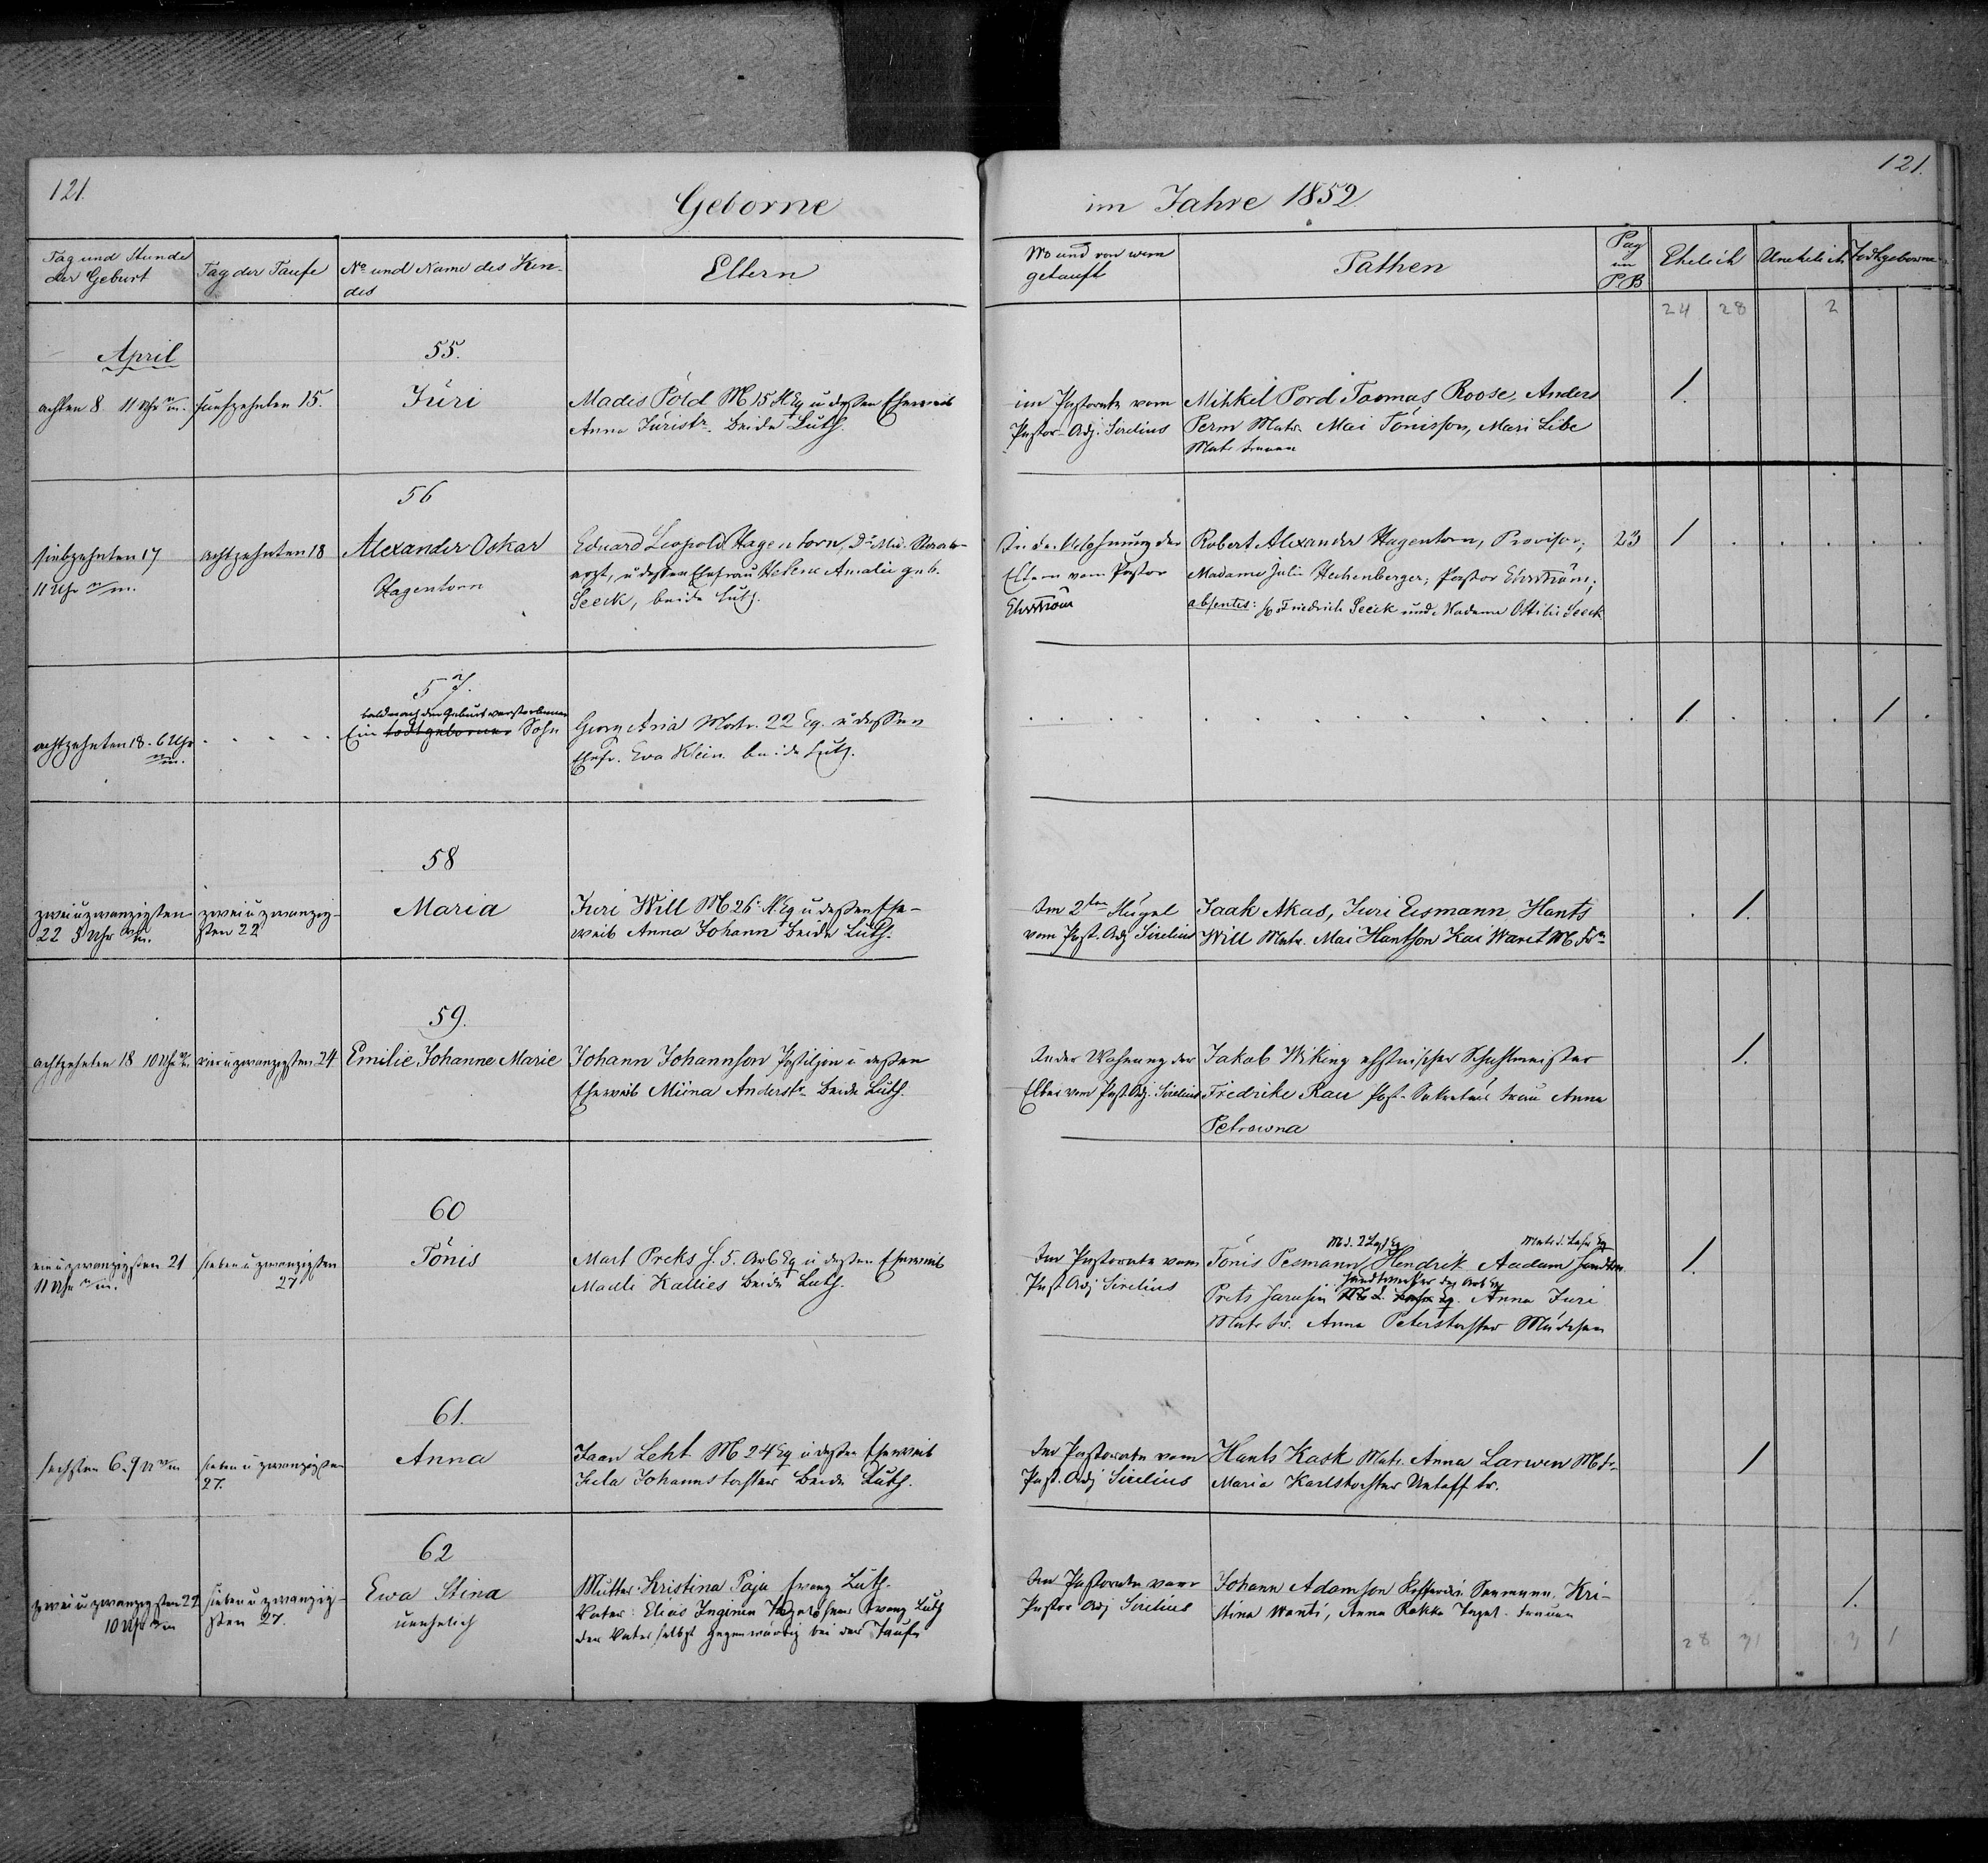 121.
Geborne
im Jahre 1852
121.
Tag und Stunde der Geburt
Tag der Taufe
No und Name des Kindes
Eltern
Wo und von wem getauft
Pathen
Pag im PB
Ehelich
Unehelich
Todtgeborne
24 28 2
April
55.
achten 8. 11 Uhr n/m.
fünfzehnten 15.
Jüri
Mades Pöld M 15 Eq u deßen Eheweib
Anna Juristr. beide Luth.
im Pastorate vom
Pastor-Adj. Sirelius
Mihkel Pord Toomas Roose, Anders
Perm Matr. Mai Tönisson, Mari Libe
Matr frauen
1.
56
siebzehnten 17
11 Uhr n/m.
achtzehnten 18
Alexander Oskar
Hagentorn
Eduard Leopold Hagentorn, Dr Med.
arzt, u deßen Ehefrau Helene Amalie geb.
Seeck, beide Luth.
In der Wohnung der
Eltern vom Pastor
Ehrström
Robert Alexander Hagentorn, Provisor,
Madame Julie Hechenberger; Pastor Ehrström;
absentes: Friedrich Seeck und Madame Ottilie Seeck
23
1
57.
achtzehnten 18. 6 Uhr
bald nach der Geburt verstorbener
Ein todtgeborner Sohn
Georg Aria Matr. 22 Eq. u deßen
Ehefr. Ewa Klein. beide Luth.
1. 1
58
zwei u zwanzigsten
22 5 Uhr
zwei u zwanzig-
sten 22
Maria
Juri Will M 26 Eq u deßen Ehe-
weib Anna Johann beide Luth.
Im 2ten Flügel
vom Past. Adj Sirelius
Jaak Akas, Juri Eismann, Hants
Will Matr. Mai Hantson Kai Waret M Fr
1.
59.
achtzehnten 18 10 Uhr
vier u zwanzigsten 24
Emilie Johanne Marie
Johann Johannson Postiljon u deßen
Eheweib Miina Anderstr beide Luth.
In der Wohnung der
Elter vom Past Adj. Sirelius
Jakob Wiking ehstnischer Schulmeister
Fredrike Rau Post-Sekretärs frau Anna
Petrowna
1.
60
ein u zwanzigsten 21
11 Uhr n/m.
sieben u zwanzigsten
27
Tönis
Mart Preks 5. Arb Eq u deßen Eheweib
Madli Kallies beide Luth.
Im Pastorate vom
Past Adj Sirelius
Tönis Pesmann Hendrik Aadam
Prets Anna Juri
Matr fr. Anna Peterstochter Mädchen
1.
61.
sechsten 6. 9 U
sieben u zwanzigsten
27.
Anna
Jaan Leht M 24 Eq u deßen Eheweib
Johannstochter beide Luth.
Im Pastorate vom
Past. Adj Sirelius
Hants Kask Matr. Anna Larwen M fr
Maria Karlstochter Untoff fr.
1
62
zwei u zwanzigsten 22
10 Uhr
sieben u zwanzig-
sten 27.
Ewa Stina
unehelich
Mutter Kristina Paja Evang Luth.
Vater: Elias Inginen Evang Luth
der Vater selbst gegenwärtig bei der Taufe
Im Pastorate vom
Pastor Adj Sirelius
Johann Adamson Seemann. Kri-
stina Wanti, Anna Rokka frauen
1.
28 31 3 1